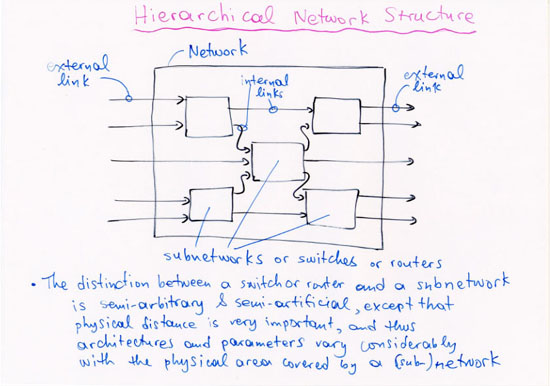 Hierarchical Network Structure
Network
external
link
internal
links
external
link
subnetworks or switches or routers
• The distinction between a switch or router and a subnetwork
is semi-arbitrary & semi-artificial, except that
physical distance is very important, and thus
architectures and parameters vary considerably
with the physical area covered by a (sub-)network